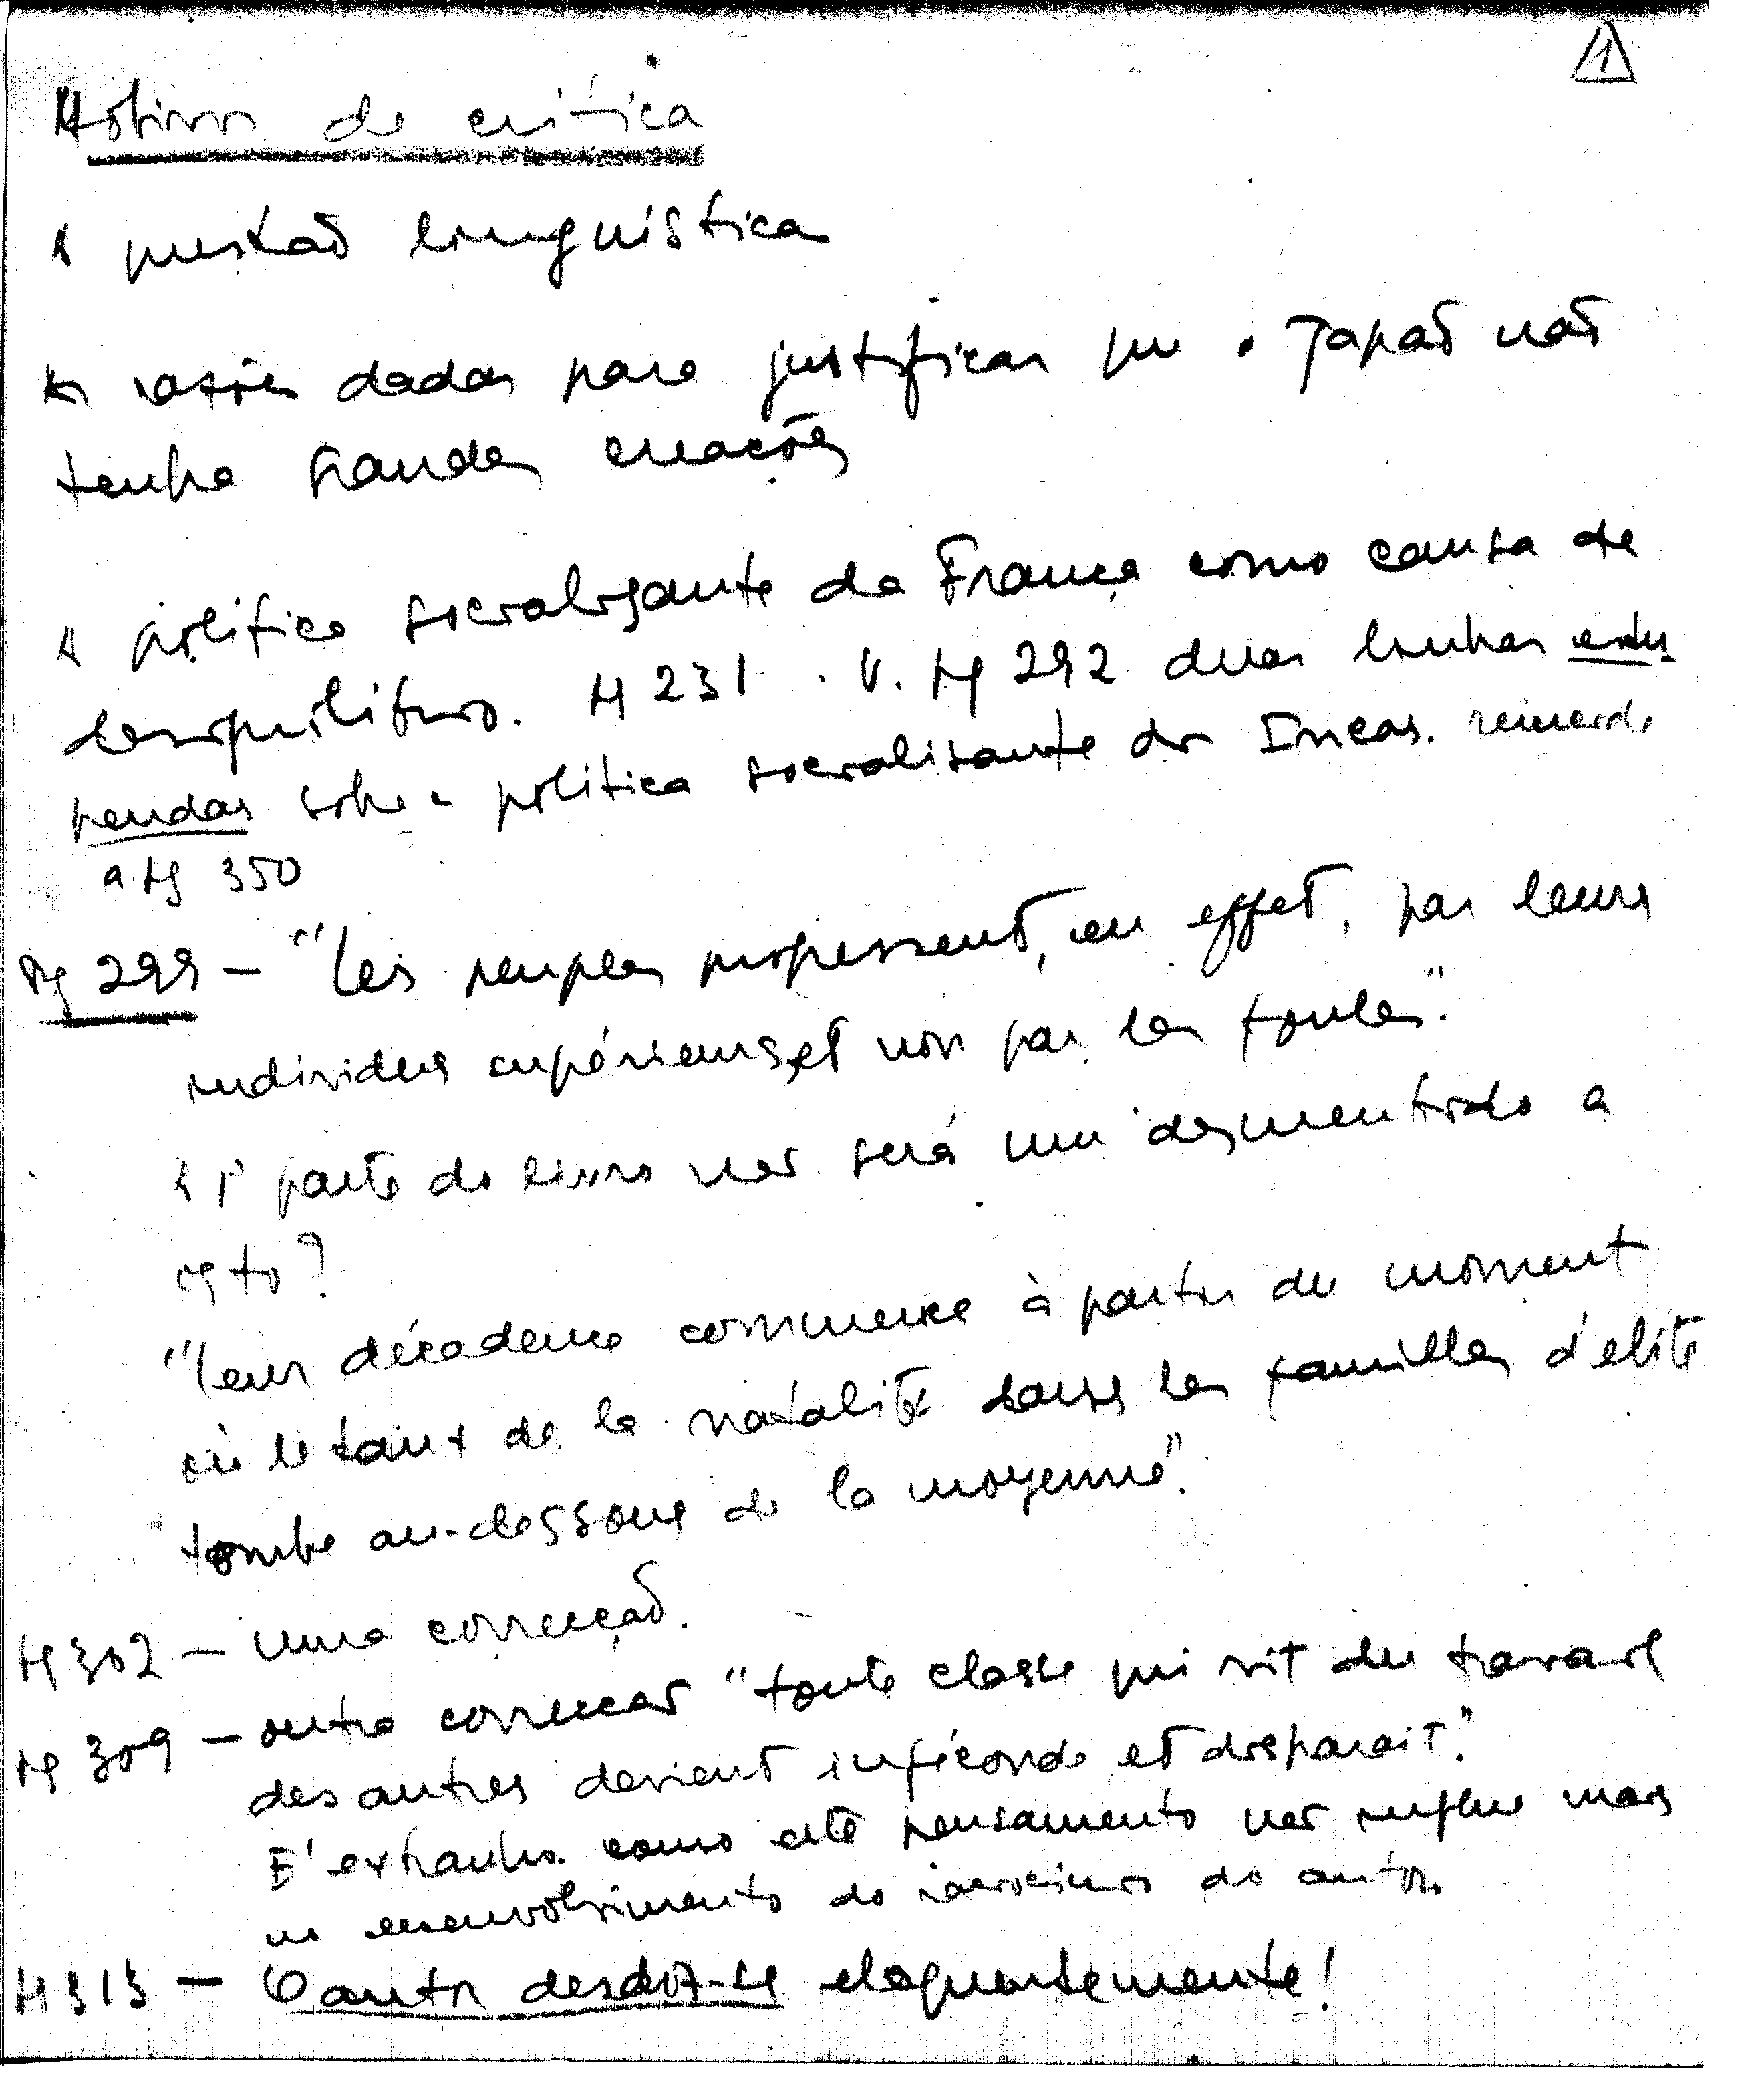 1
Motivos de critica
A questaõ linguistica
As razões dadas para justificar que o Japaõ naõ
tenha grandes creações
A politica socialisante da França como causa de
desiquilibrio. Pg 231. V. Pg 292 duas linhas estu
pendas sobre a politica socialisante dos Incas.
a Pg 350
Pg 299 – "Les peuples progressent, en effet, par leurs
individus supérieurs, et non par les foules."
A 1ª parte do livro naõ será um desmentido a
isto?
"Leur décadence commence à partir du moment
où le taux de la natalité dans les familles d'elite
tombe au-dessous de la moyenne".
Pg 302 – uma correcçaõ.
Pg 309 – outra correcçaõ "toute classe qui vit du travail
des autres devient inféconde et disparait."
E' extranho como este pensamento naõ influe mais
no desenvolvimento do raciocinio do autor.
Pg 313 – O autor desdiz-se eloquentemente!